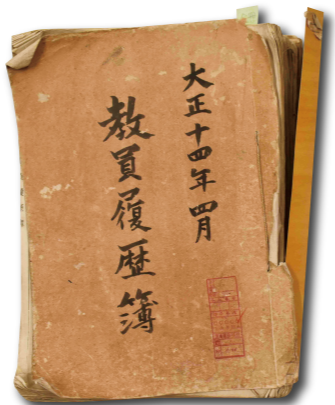 大正十四年四月
教員履歴簿